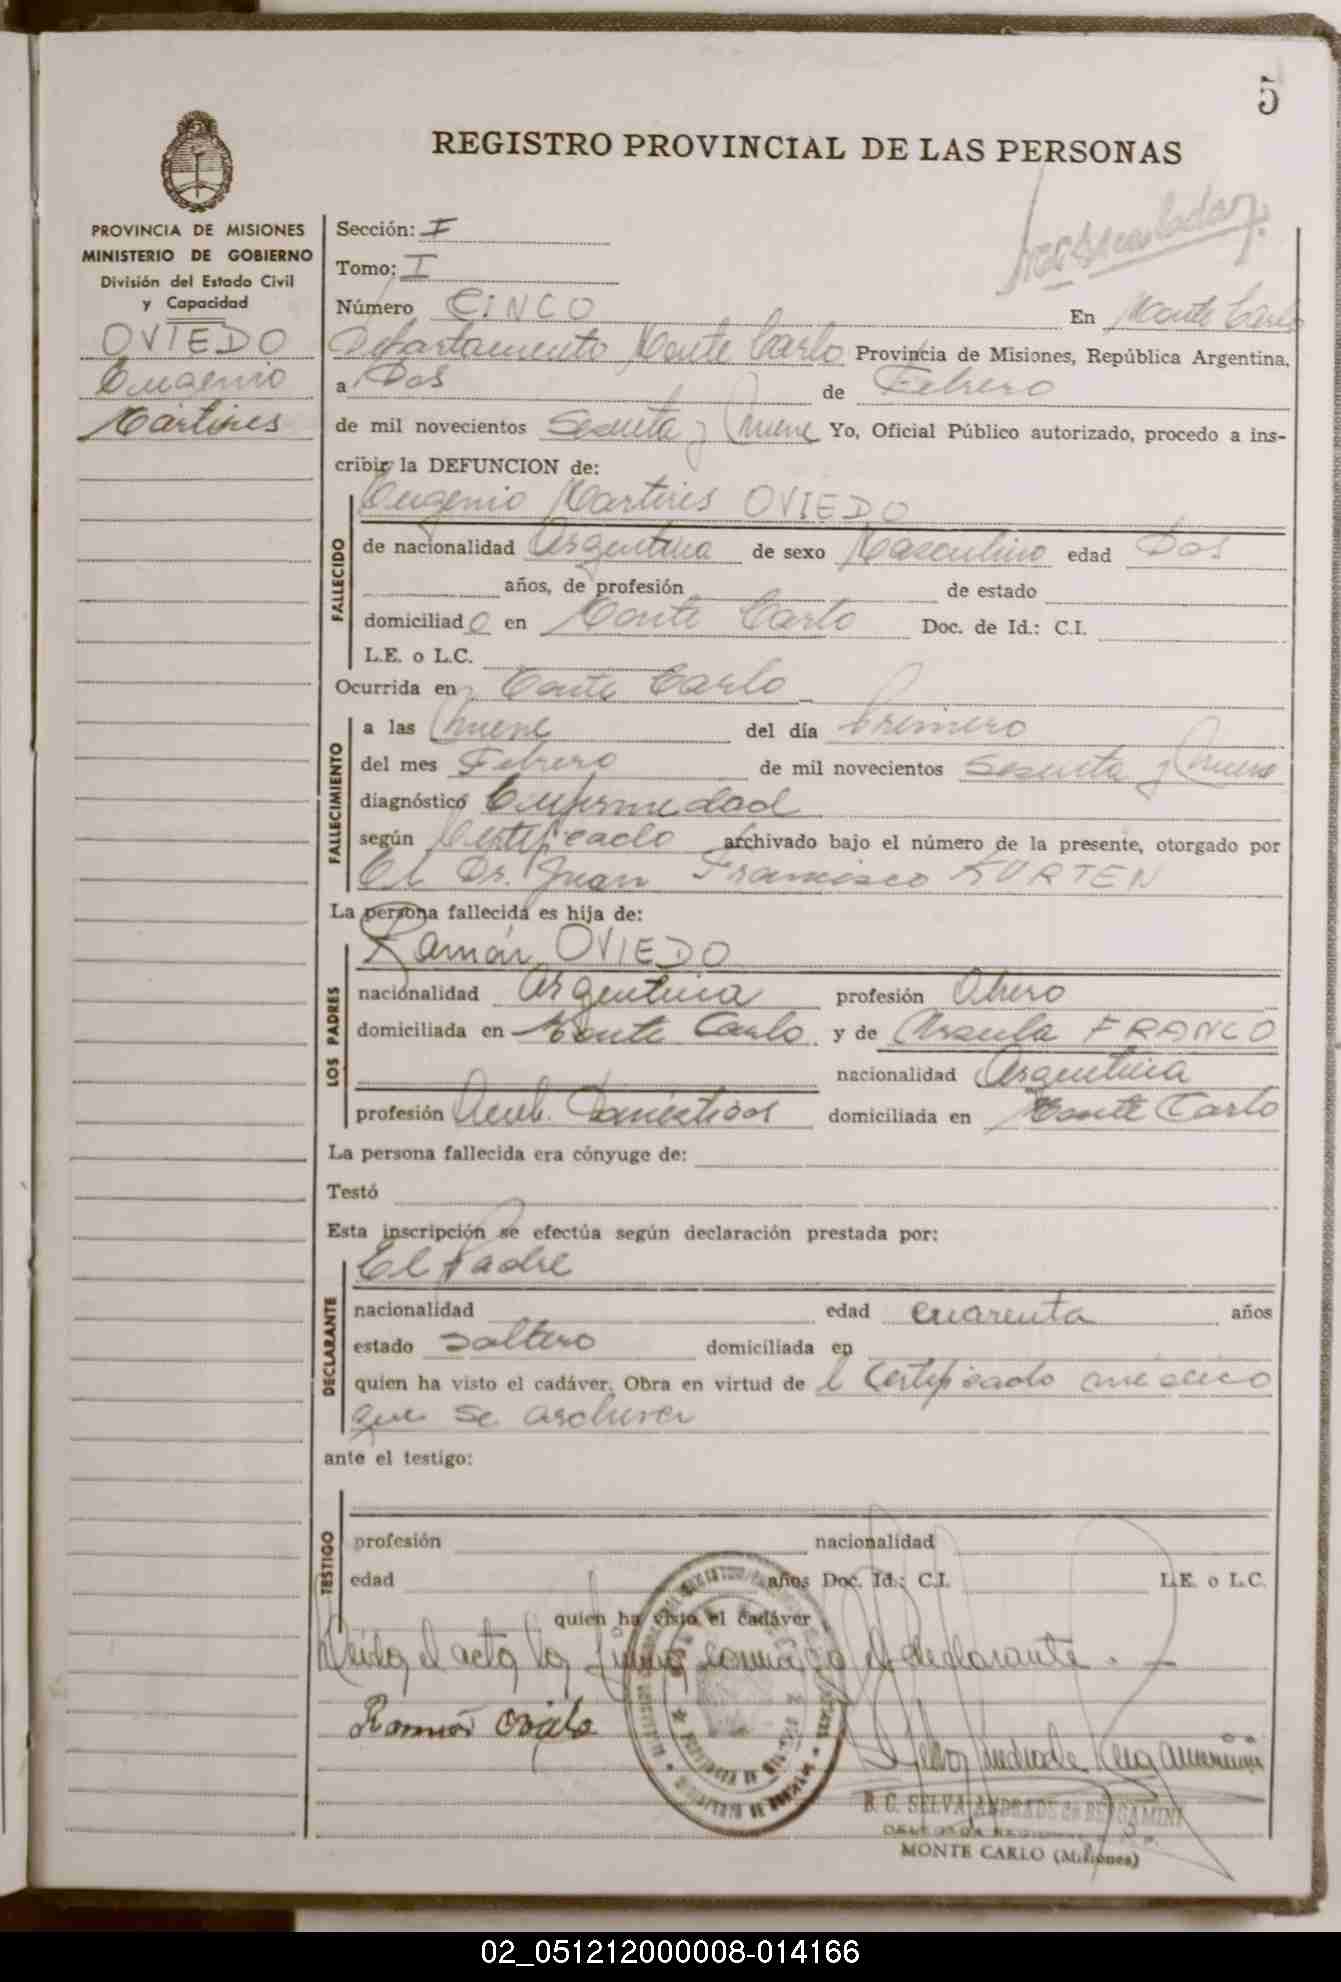 5
REGISTRO PROVINCIAL DE LAS PERSONAS
PROVINCIA DE MISIONES
MINISTERIO DE GOBIERNO
División del Estado Civil
y Capacidad
OVIEDO
Eugenio
Mártires
Sección: I
Tomo: I
Número CINCO En Monte Carlo
Departamento Monte Carlo Provincia de Misiones, República Argentina,
a Dos de Febrero
de mil novecientos Sesenta y Nueve Yo, Oficial Público autorizado, procedo a ins-
cribir la DEFUNCION de:
Eugenio Martires OVIEDO
FALLECIDO
de nacionalidad Argentina de sexo Masculino edad Dos
años, de profesión de estado
domiciliado en Monte Carlo Doc. de Id.: C.I.
L.E. o L.C.
Ocurrida en Monte Carlo
FALLECIMIENTO
a las Nueve del día Primero
del mes Febrero de mil novecientos Sesenta y Nueve
diagnóstico Enfermedad
según Certificado archivado bajo el número de la presente, otorgado por
El Dr. Juan Francisco KURTEN
La persona fallecida es hija de:
LOS PADRES
Ramón OVIEDO
nacionalidad Argentina profesión Obrero
domiciliada en Monte Carlo y de Ursula FRANCO
nacionalidad Argentina
profesión Domésticos domiciliada en Monte Carlo
La persona fallecida era cónyuge de:
Testó
Esta inscripción se efectúa según declaración prestada por:
DECLARANTE
El Padre
nacionalidad edad cuarenta años
estado Soltero domiciliada en
quien ha visto el cadáver. Obra en virtud de l Certificado médico
que se archiva
ante el testigo:
TESTIGO
profesión nacionalidad
edad años Doc. Id.: C.I. L.E. o L.C.
quien ha visto el cadáver
Leída el acta la firma conmigo el declarante. —
Ramón Oviedo
SELVA ANDRADE de BERGAMINI
MONTE CARLO (Misiones)
02_051212000008-014166